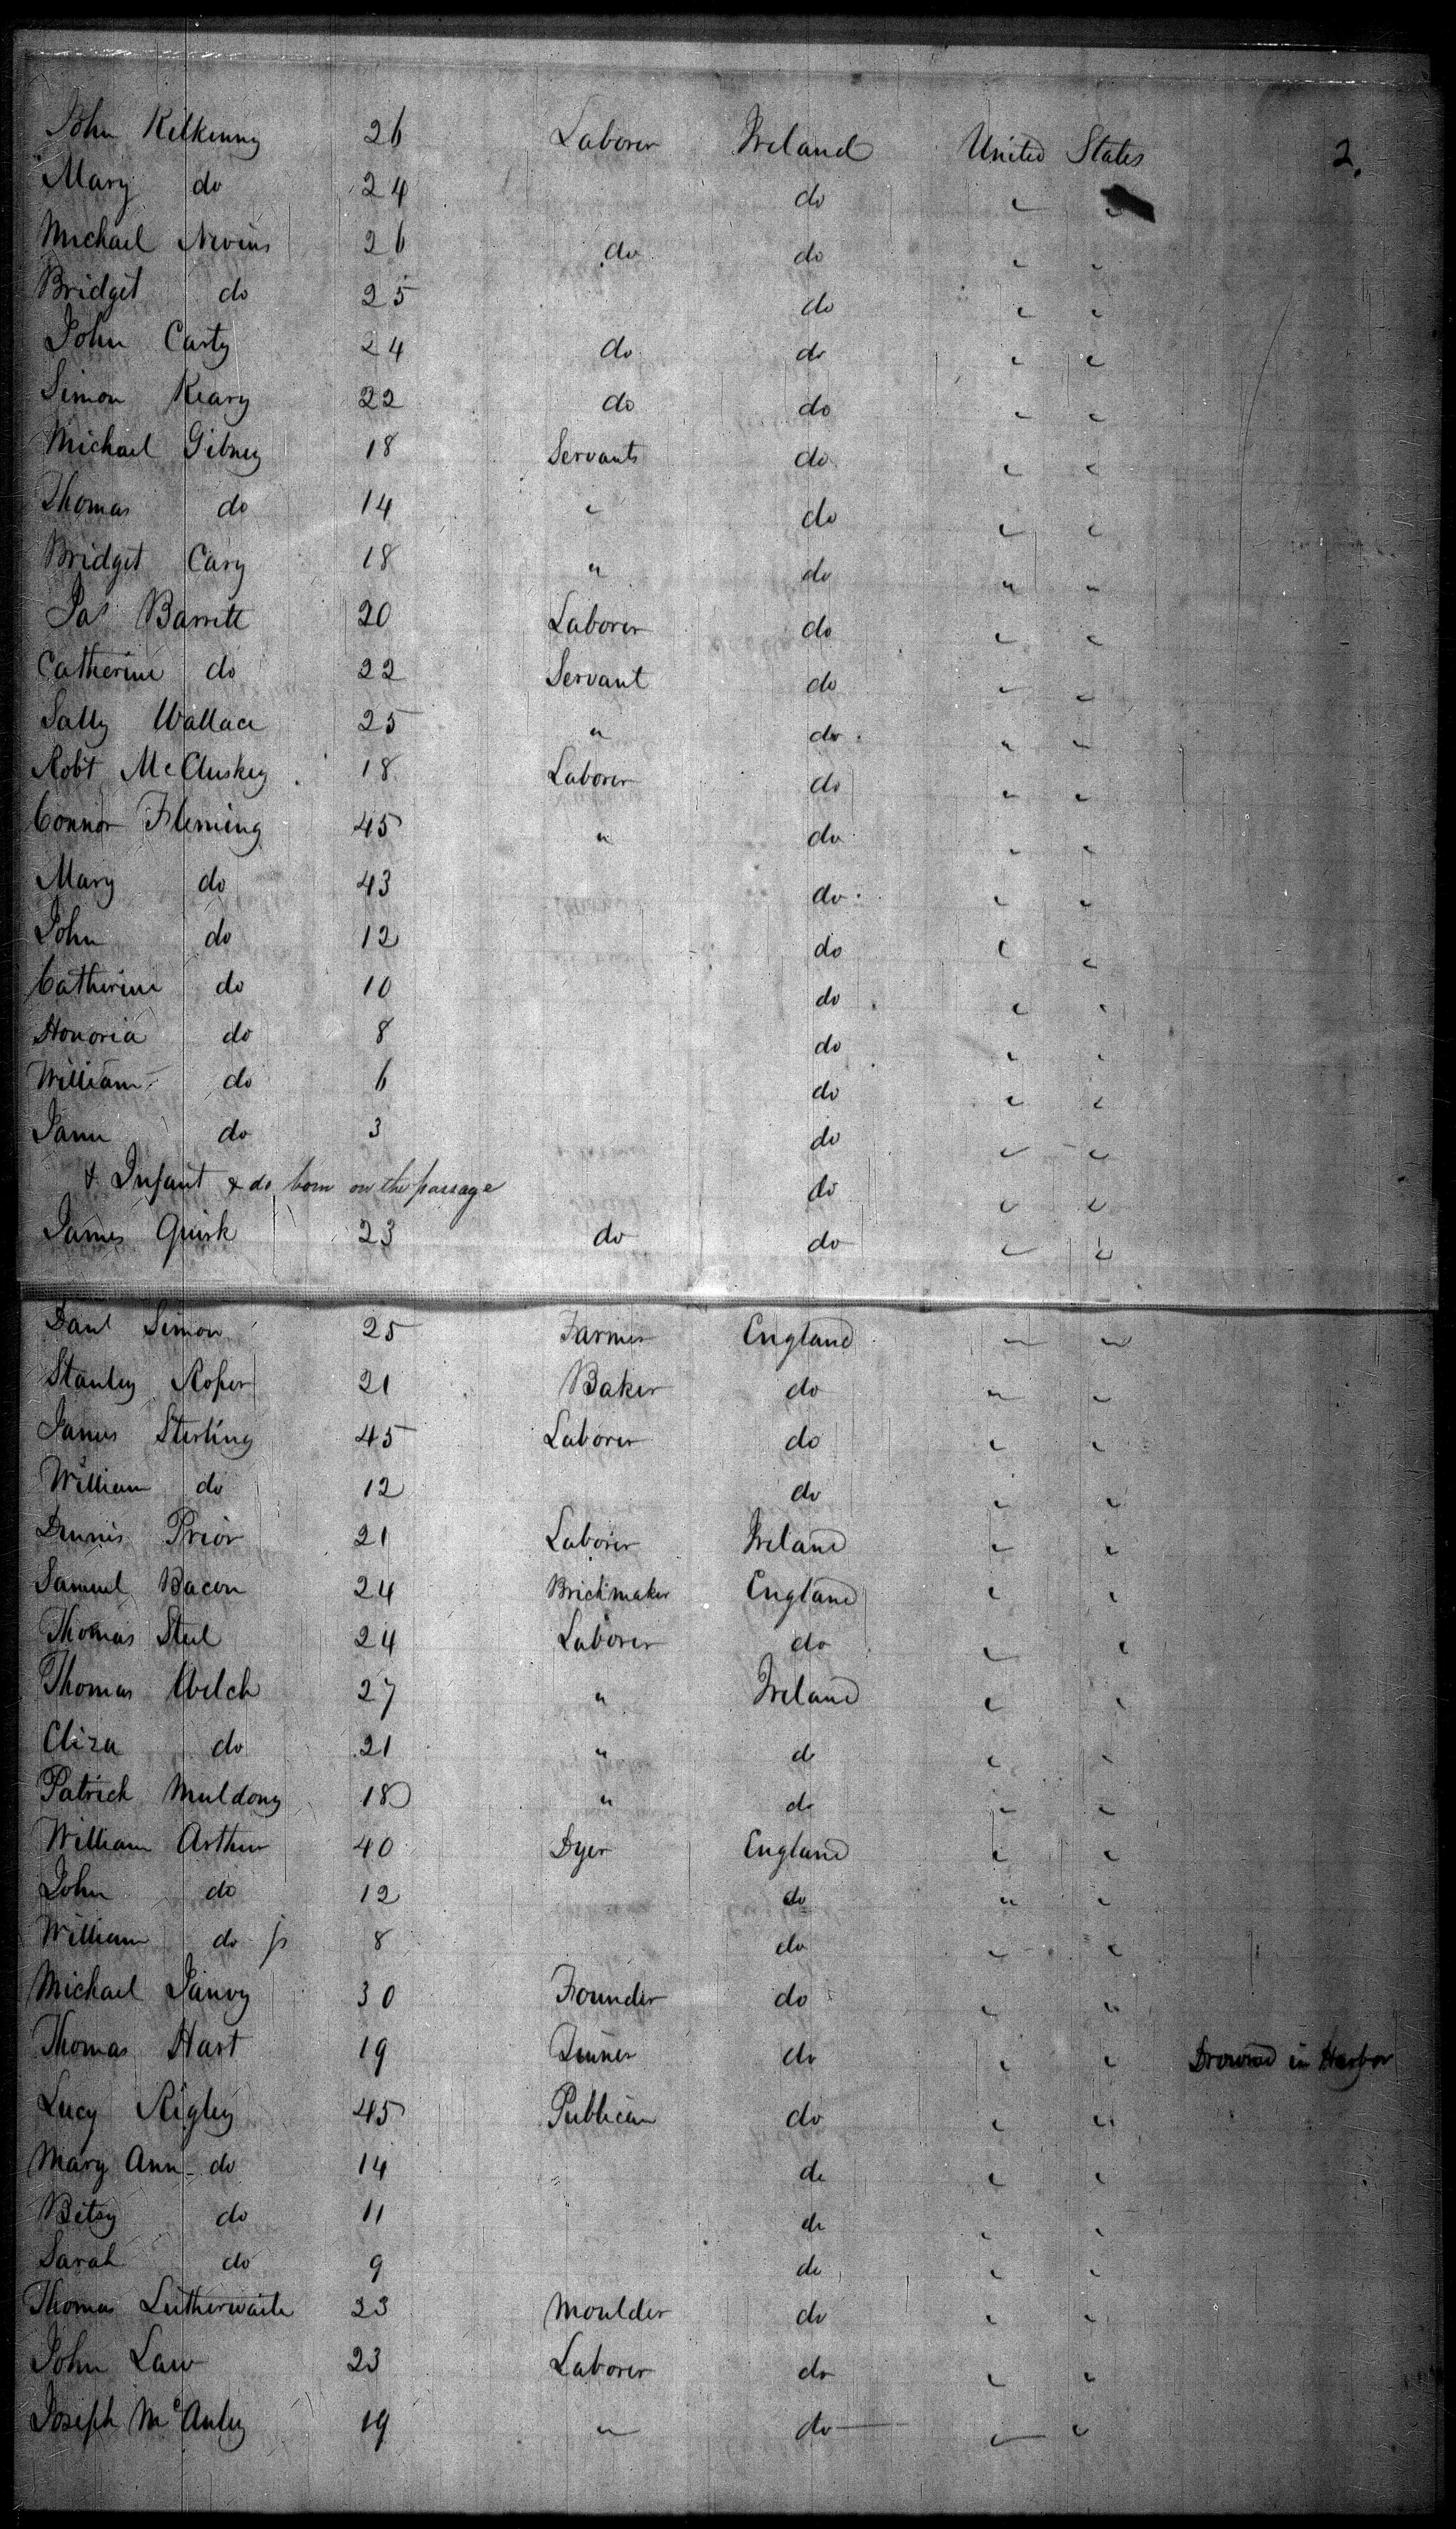 John Kilkenny 26 Laborer Ireland United States 2.
Mary do 24 do " "
Michael Nevins 26 do do " "
Bridget do 25 do " "
John Carty 24 do do " "
Simon Keary 22 do do " "
Michael Gibney 18 Servants do " "
Thomas do 14 " do " "
Bridget Cary 18 " do " "
Jas Barrett 20 Laborer do " "
Catherine do 22 Servant do " "
Sally Wallace 25 " do " "
Robt McCluskey 18 Laborer do " "
Connor Fleming 45 " do " "
Mary do 43 do " "
John do 12 do " "
Catherine do 10 do " "
Honoria do 8 do " "
William do 6 do " "
Jane do 3 do " "
& Infant & do born on the passage do " "
James Quirk 23 do do " "
Danl Simon 25 Farmer England " "
Stanley Roper 21 Baker do " "
James Sterling 45 Laborer do " "
William do 12 do " "
Dennis Prior 21 Laborer Ireland " "
Samuel Bacon 24 Brickmaker England " "
Thomas Steel 24 Laborer do " "
Thomas Welch 27 " Ireland " "
Eliza do 21 " do " "
Patrick Muldony 18 " do " "
William Arthur 40 Dyer England " "
John do 12 do " "
William do jr 8 do " "
Michael 30 Founder do " "
Thomas Hart 19 do " " Drowned in Harbor
Lucy Rigley 45 Publican do " "
Mary Ann do 14 do " "
Betsy do 11 do " "
Sarah do 9 do " "
Thomas Lutherwaite 23 Moulder do " "
John Law 23 Laborer do " "
Joseph McAuley 19 " do " "